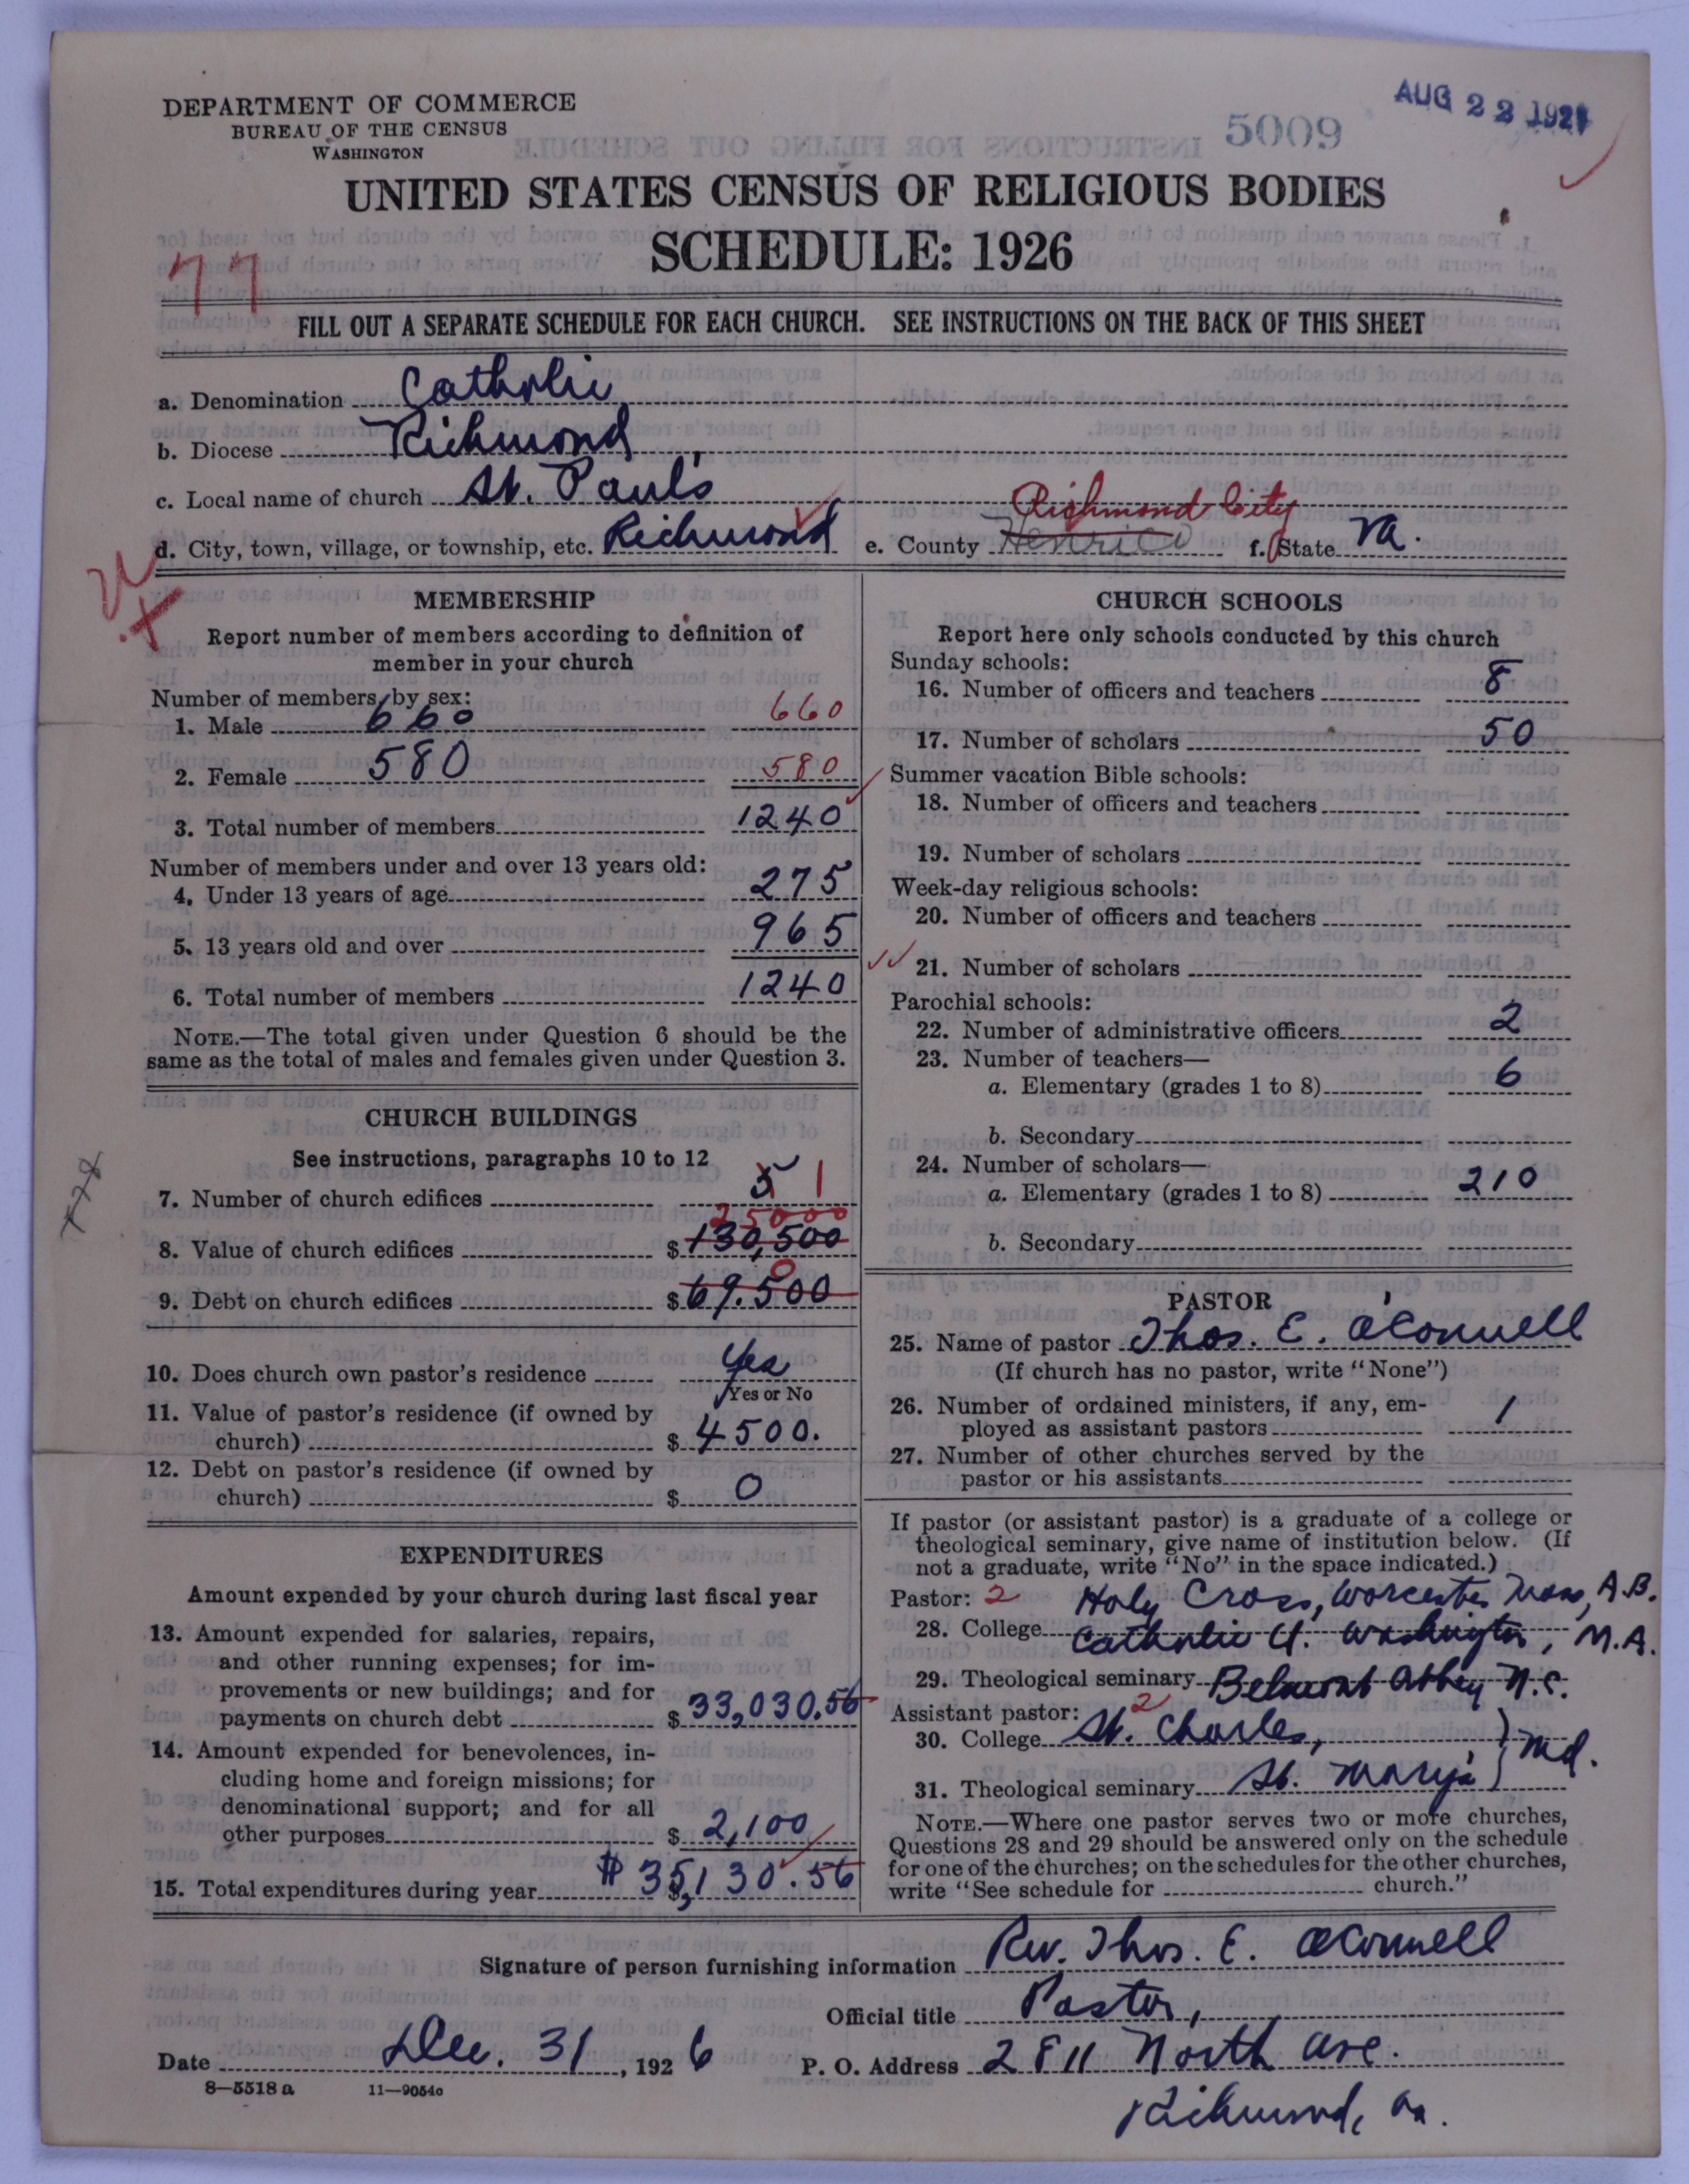 DEPARTMENT OF COMMERCE
BUREAU OF THE CENSUS
WASHINGTON
5009
AUG 22 192
UNITED STATES CENSUS OF RELIGIOUS BODIES
SCHEDULE: 1926
77
FILL OUT A SEPARATE SCHEDULE FOR EACH CHURCH. SEE INSTRUCTIONS ON THE BACK OF THIS SHEET
a. Denomination Catholic
b. Diocese Richmond
c. Local name of church St. Paul's
Richmond City
d. City, town, village, or township, etc. Richmond e. County Henrico f. State Va.
MEMBERSHIP
Report number of members according to definition of
member in your church
Number of members by sex:
1. Male 660 660
2. Female 580 580
3. Total number of members 1240
Number of members under and over 13 years old:
4. Under 13 years of age 275
5. 13 years old and over 965
6. Total number of members 1240
NOTE.—The total given under Question 6 should be the
same as the total of males and females given under Question 3.
CHURCH BUILDINGS
See instructions, paragraphs 10 to 12
7. Number of church edifices 5 1
25000
8. Value of church edifices $ 130,500
0
9. Debt on church edifices $ 69.500
10. Does church own pastor's residence Yes
Yes or No
11. Value of pastor's residence (if owned by
church) $ 4500.
12. Debt on pastor's residence (if owned by
church) $ 0
EXPENDITURES
Amount expended by your church during last fiscal year
13. Amount expended for salaries, repairs,
and other running expenses; for im-
provements or new buildings; and for
payments on church debt $ 33,030.56
14. Amount expended for benevolences, in-
cluding home and foreign missions; for
denominational support; and for all
other purposes $ 2,100
15. Total expenditures during year $ 35,130.56
CHURCH SCHOOLS
Report here only schools conducted by this church
Sunday schools:
16. Number of officers and teachers 8
17. Number of scholars 50
Summer vacation Bible schools:
18. Number of officers and teachers
19. Number of scholars
Week-day religious schools:
20. Number of officers and teachers
21. Number of scholars
Parochial schools:
22. Number of administrative officers 2
23. Number of teachers—
a. Elementary (grades 1 to 8) 6
b. Secondary
24. Number of scholars—
a. Elementary (grades 1 to 8) 210
b. Secondary
PASTOR
25. Name of pastor Thos. E. O'Connell
(If church has no pastor, write "None")
26. Number of ordained ministers, if any, em-
ployed as assistant pastors 1
27. Number of other churches served by the
pastor or his assistants
If pastor (or assistant pastor) is a graduate of a college or
theological seminary, give name of institution below. (If
not a graduate, write "No" in the space indicated.)
Pastor: 2 Holy Cross, Worcester Mass, A.B.
28. College Catholic U. Washington, M.A.
29. Theological seminary Belmont Abbey N.C.
Assistant pastor: 2
30. College St. Charles, } Md.
31. Theological seminary St. Mary's
NOTE.—Where one pastor serves two or more churches,
Questions 28 and 29 should be answered only on the schedule
for one of the churches; on the schedules for the other churches,
write "See schedule for church."
Signature of person furnishing information Rev. Thos. E. O'Connell
Official title Pastor,
Date Dec. 31, 1926 P. O. Address 2811 North Ave.
8—5518a 11—9054a
Richmond, Va.